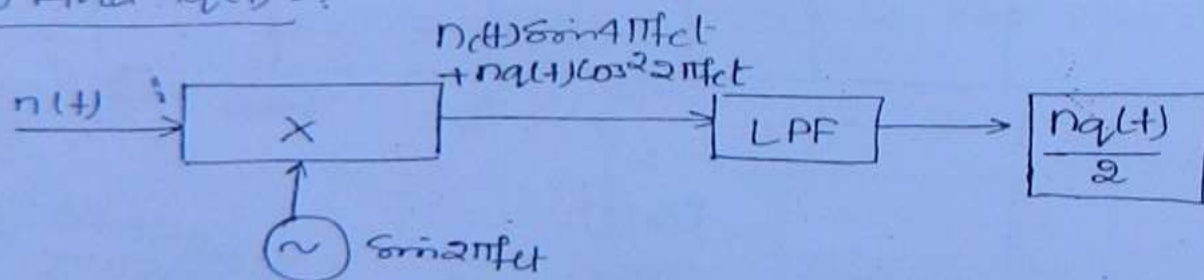 n(t)sin4πfct
+nq(t)cos²2πfct
n(t)
X
LPF
nq(t)
2
~ sin2πfct